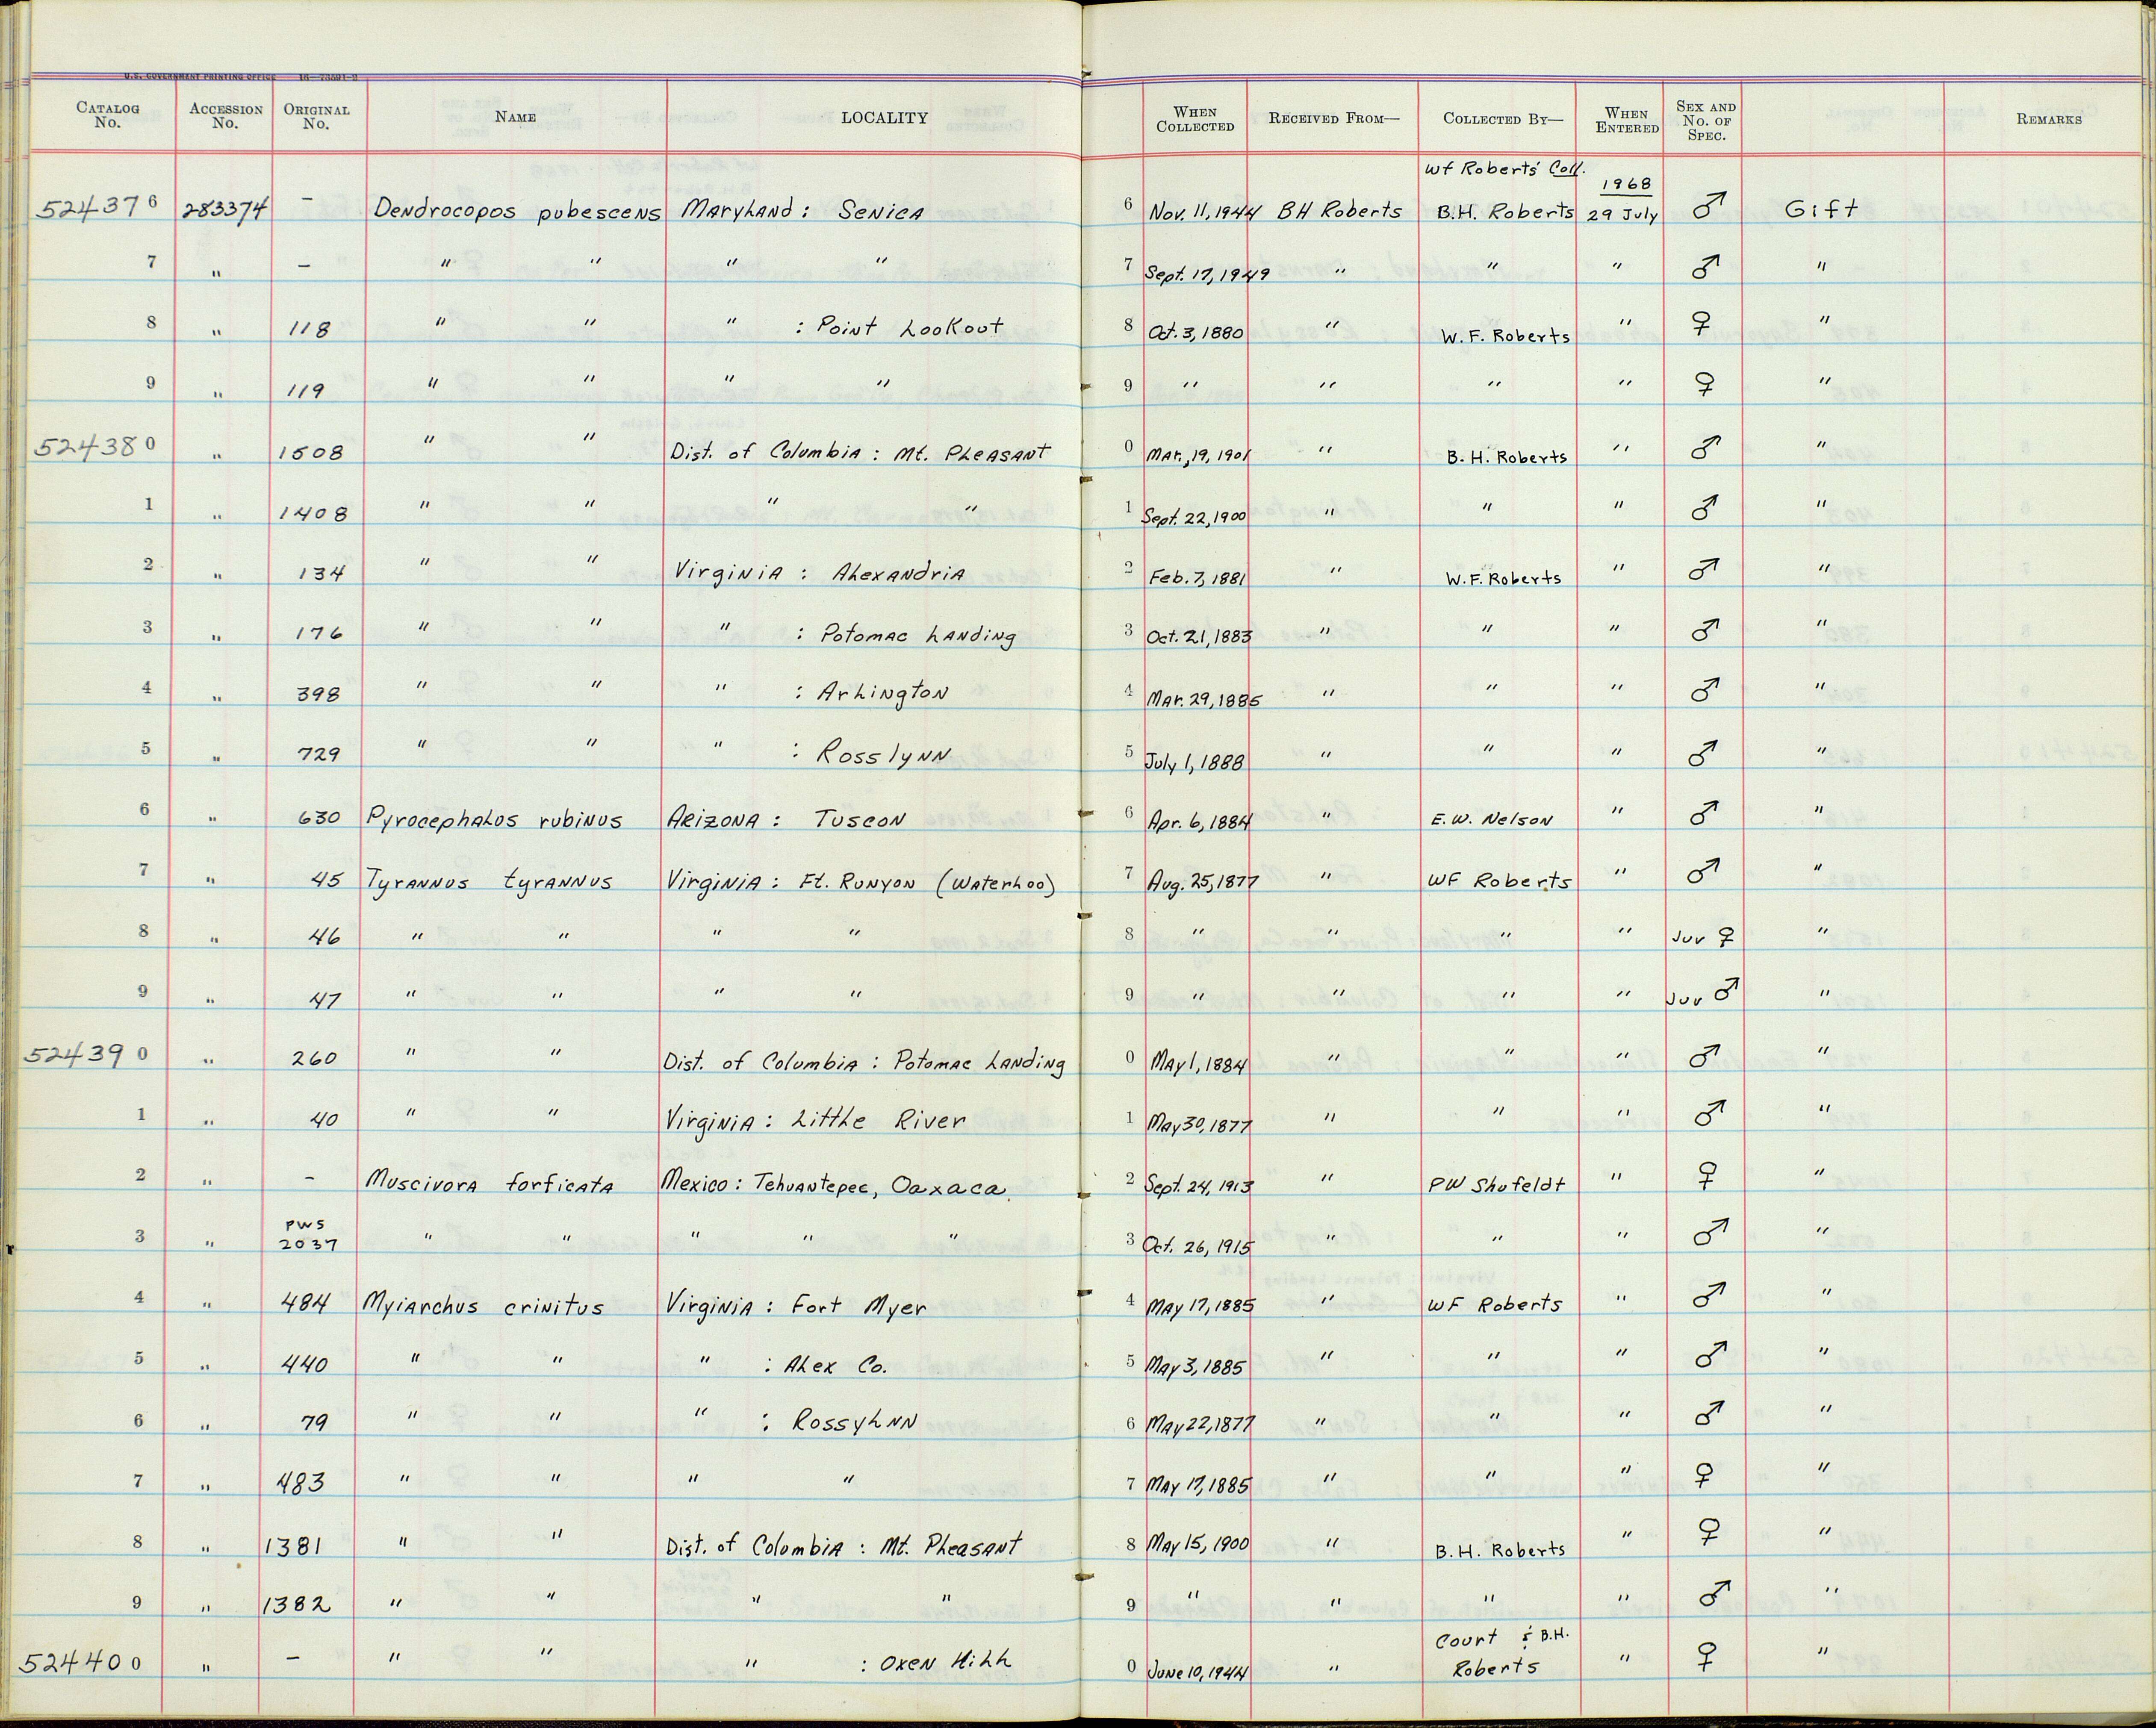 U.S. GOVERNMENT PRINTING OFFICE 16—73591-2
CATALOG No. ACCESSION No. ORIGINAL No. NAME LOCALITY WHEN COLLECTED RECEIVED FROM— COLLECTED BY— WHEN ENTERED SEX AND No. OF SPEC. REMARKS
Wf Roberts' Coll.
1968
524376 283374 – Dendrocopos pubescens Maryland : Senica 6 Nov. 11, 1944 BH Roberts B.H. Roberts 29 July ♂ Gift
7 " – " " " " 7 Sept. 17, 1949 " " " ♂ "
8 " 118 " " " : Point Lookout 8 Oct. 3, 1880 " W. F. Roberts " ♀ "
9 " 119 " " " " 9 " " " " ♀ "
524380 " 1508 " " Dist. of Columbia : Mt. Pleasant 0 Mar. 19, 1901 " B. H. Roberts " ♂ "
1 " 1408 " " " " 1 Sept. 22, 1900 " " " ♂ "
2 " 134 " " Virginia : Alexandria 2 Feb. 7, 1881 " W. F. Roberts " ♂ "
3 " 176 " " " : Potomac Landing 3 Oct. 21, 1883 " " " ♂ "
4 " 398 " " " : Arlington 4 Mar. 29, 1885 " " " ♂ "
5 " 729 " " " : Rosslynn 5 July 1, 1888 " " " ♂ "
6 " 630 Pyrocephalus rubinus Arizona : Tuscon 6 Apr. 6, 1884 " E. W. Nelson " ♂ "
7 " 45 Tyrannus tyrannus Virginia : Ft. Runyon (Waterloo) 7 Aug. 25, 1877 " WF Roberts " ♂ "
8 " 46 " " " " 8 " " " " Juv ♀ "
9 " 47 " " " " 9 " " " " Juv ♂ "
524390 " 260 " " Dist. of Columbia : Potomac Landing 0 May 1, 1884 " " " ♂ "
1 " 40 " " Virginia : Little River 1 May 30, 1877 " " " ♂ "
2 " – Muscivora forficata Mexico : Tehuantepec, Oaxaca 2 Sept. 24, 1913 " PW Shufeldt " ♀ "
3 " PWS 2037 " " " " " 3 Oct. 26, 1915 " " " ♂ "
4 " 484 Myiarchus crinitus Virginia : Fort Myer 4 May 17, 1885 " WF Roberts " ♂ "
5 " 440 " " " : Alex Co. 5 May 3, 1885 " " " ♂ "
6 " 79 " " " : Rossylnn 6 May 22, 1877 " " " ♂ "
7 " 483 " " " " 7 May 17, 1885 " " " ♀ "
8 " 1381 " " Dist. of Columbia : Mt. Pleasant 8 May 15, 1900 " B. H. Roberts " ♀ "
9 " 1382 " " " " 9 " " " " ♂ "
Court & B.H.
524400 " – " " " : Oxen Hill 0 June 10, 1944 " Roberts " ♀ "